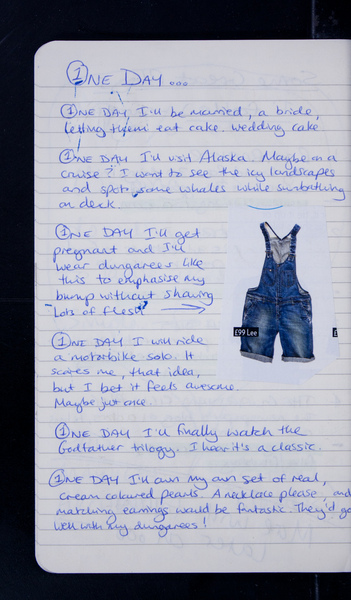 ①NE DAY...
①NE DAY, I'll be married, a bride,
letting them eat cake. wedding cake
①NE DAY I'll visit Alaska. Maybe on a
cruise? I want to see the icy landscapes
and spot some whales while sunbathing
on deck.
①NE DAY I'll get
pregnant and I'll
wear dungarees like
this to emphasise my
bump without showing
lots of flesh
£99 Lee
£
①NE DAY I will ride
a motorbike solo. It
scares me, that idea,
but I bet it feels awesome.
Maybe just one.
①NE DAY I'll finally watch the
Godfather trilogy. I hear it's a classic.
①NE DAY I'll own my own set of real,
cream coloured pearls. A necklace please, and
matching earrings would be fantastic. They'd go
well with my dungarees!